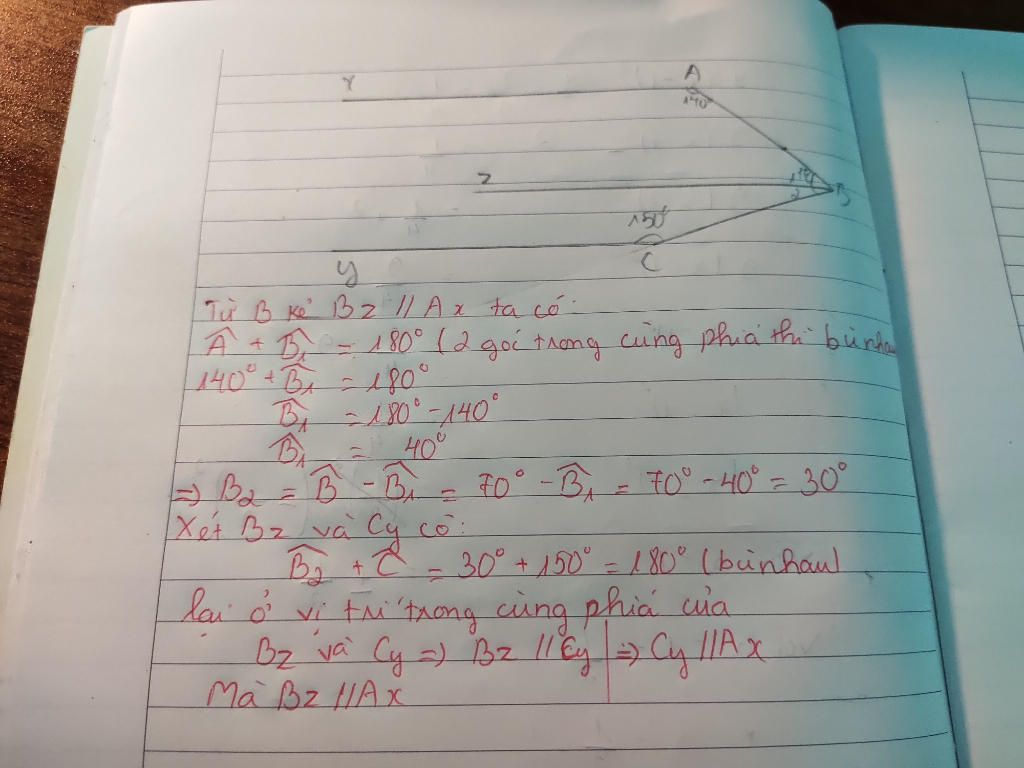 x A
140°
z 1 70° B
2
150°
y C
Từ B kẻ Bz // Ax ta có:
Â + B̂₁ = 180° (2 goć trong cùng phiá thì bùnhau
140° + B̂₁ = 180°
B̂₁ = 180° - 140°
B̂₁ = 40°
=> B₂ = B̂ - B̂₁ = 70° - B̂₁ = 70° - 40° = 30°
Xét Bz và Cy có:
B̂₂ + Ĉ = 30° + 150° = 180° (bùnhau)
lại ở vị trí trong cùng phiá của
Bz và Cy => Bz // Cy | => Cy // Ax
Mà Bz // Ax